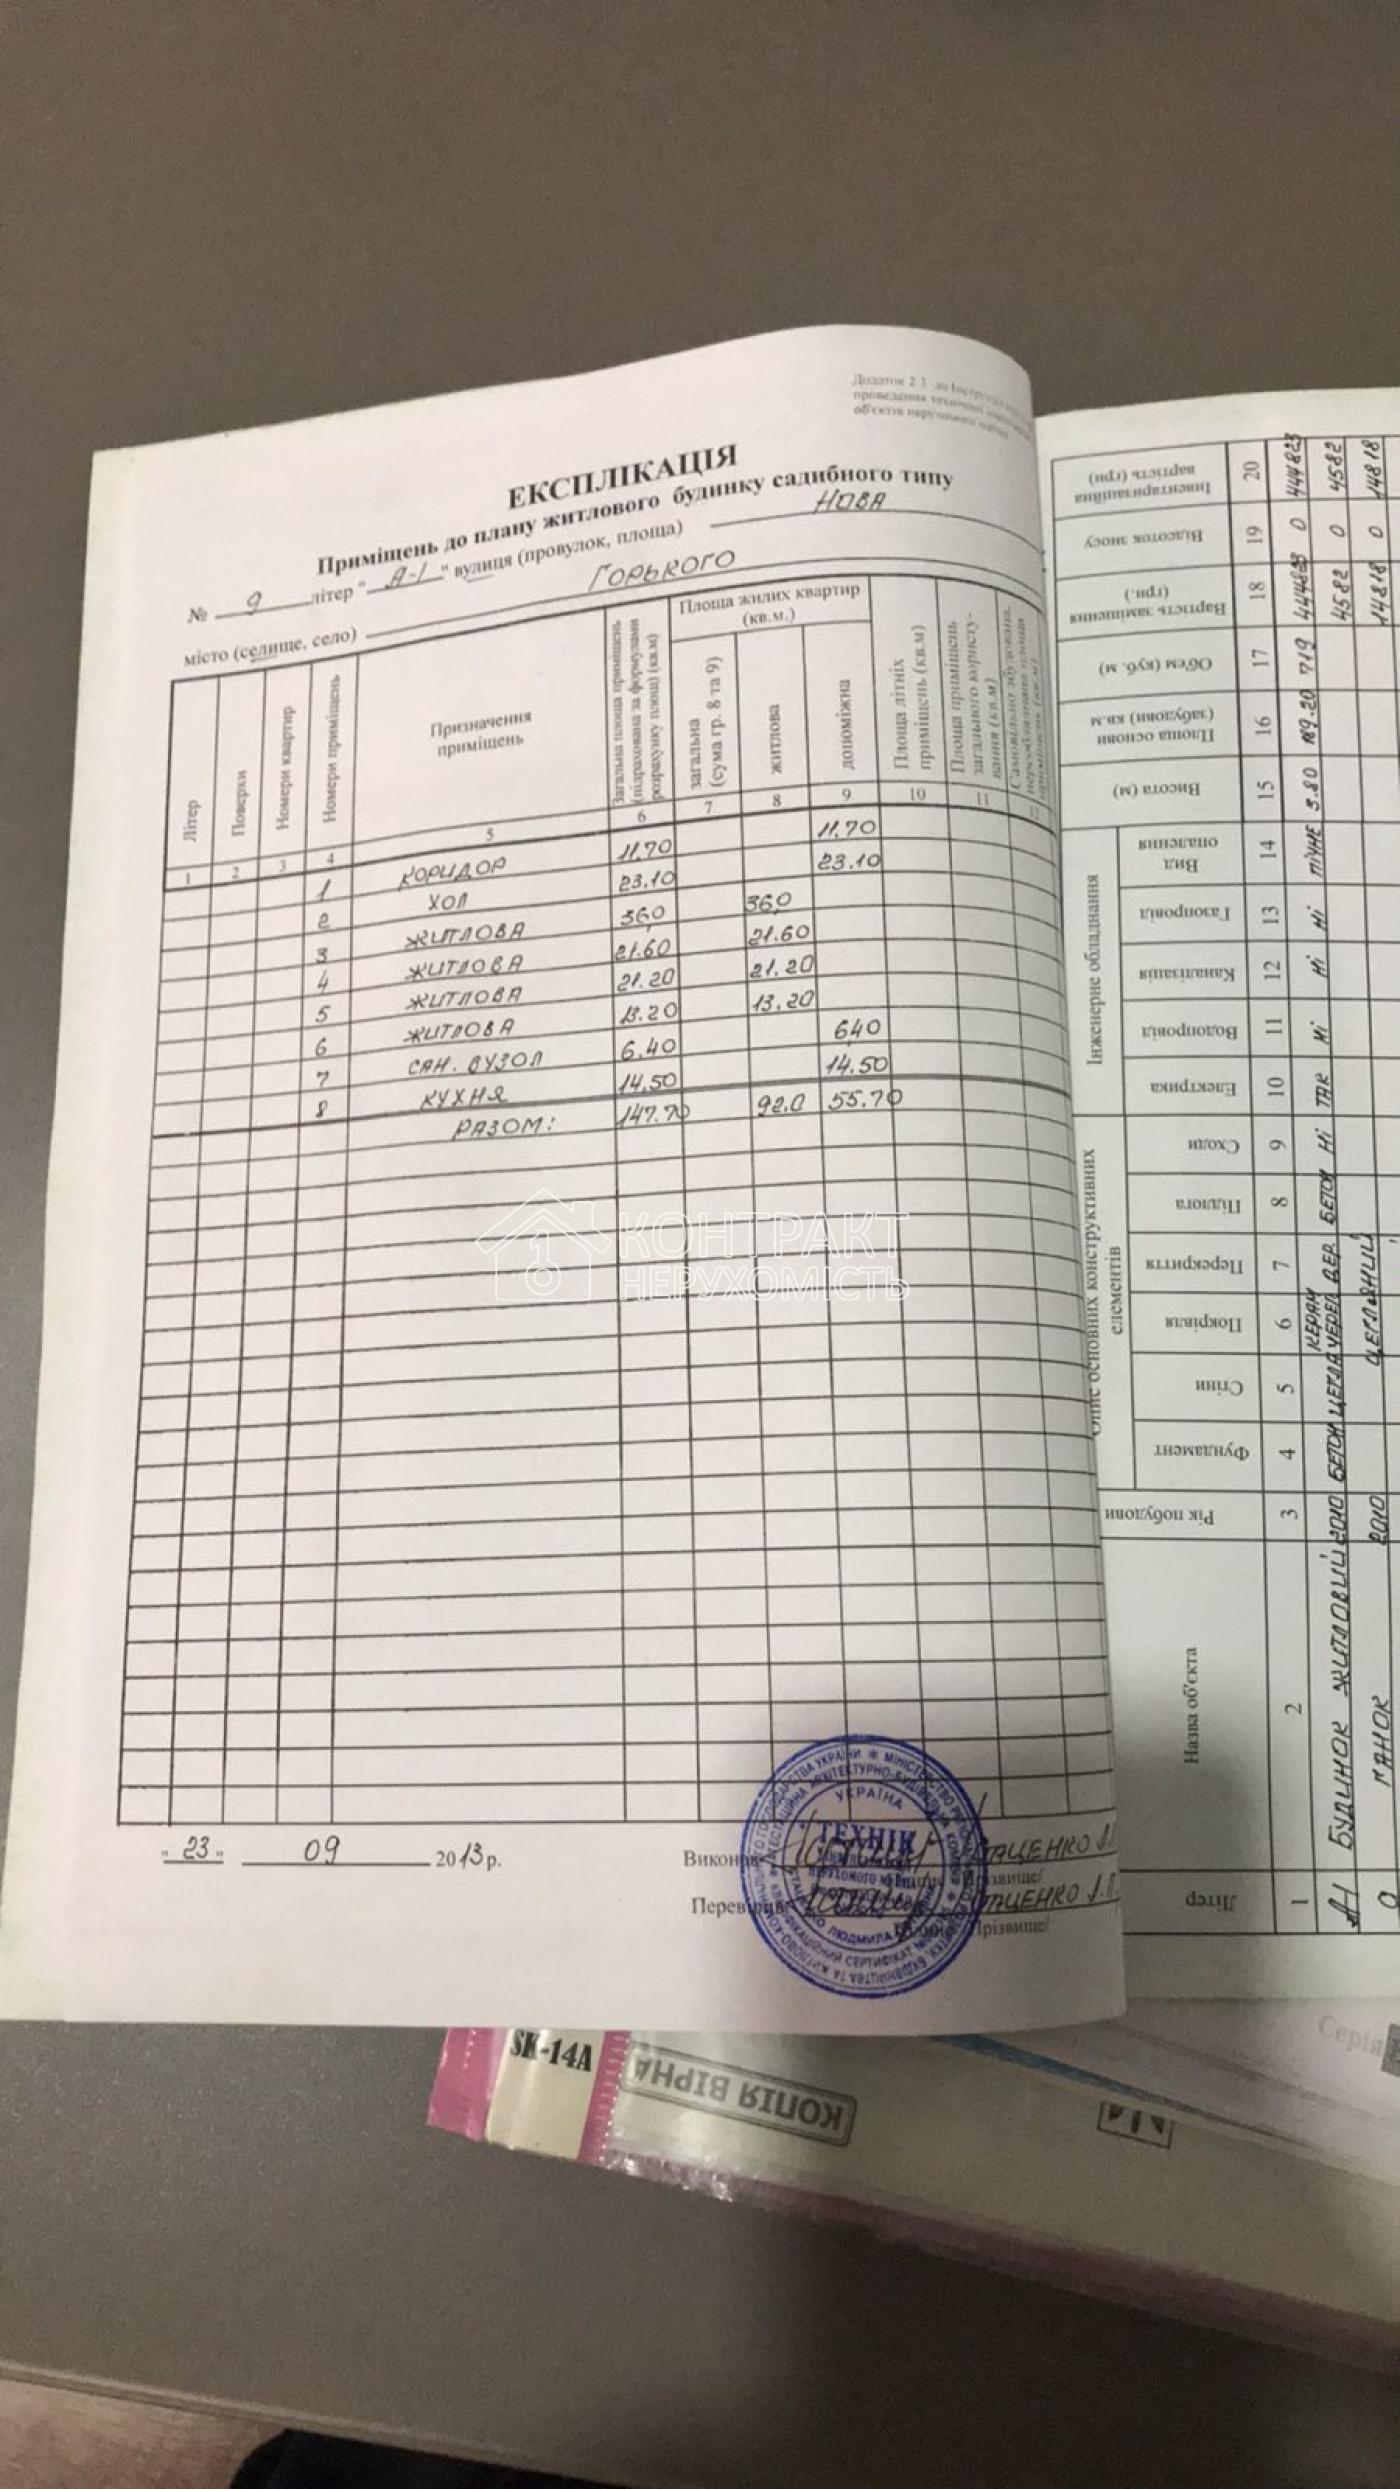 Додаток 2.3 до Інструкції
проведення технічної інвентаризації
об'єктів нерухомого майна
ЕКСПЛІКАЦІЯ
Приміщень до плану житлового будинку садибного типу
№ 9 літер "А-І" вулиця (провулок, площа) НОВА
місто (селище, село) ГОРЬКОГО
Літер
Поверхи
Номери квартир
Номери приміщень
Призначення приміщень
Загальна площа приміщень (підрахована за формулами розрахунку площ) (кв.м)
Площа жилих квартир (кв.м.)
загальна (сума гр. 8 та 9)
житлова
допоміжна
Площа літніх приміщень (кв.м)
Площа приміщень загального користування (кв.м)
1 2 3 4 5 6 7 8 9 10 11 12
1 КОРИДОР 11.70 11.70
2 ХОЛ 23.10 23.10
3 ЖИТЛОВА 36,0 36,0
4 ЖИТЛОВА 21.60 21.60
5 ЖИТЛОВА 21.20 21.20
6 ЖИТЛОВА 13.20 13.20
7 САН. ВУЗОЛ 6.40 6,40
8 КУХНЯ 14.50 14.50
РАЗОМ: 147.70 92.0 55.70
КОНТРАКТ
НЕРУХОМІСТЬ
"23" 09 2013 р.
Виконав
Перевірив
УКРАЇНА
ТЕХНІК
Прізвище/
SK-14A
КОПІЯ ВІРНА
Серія
Літер
Назва об'єкта
Рік побудови
Опис основних конструктивних елементів
Фундамент
Стіни
Покрівля
Перекриття
Підлога
Сходи
Інженерне обладнання
Електрика
Водопровід
Каналізація
Газопровід
Вид опалення
Висота (м)
Площа основи (забудови) кв.м
Об'єм (куб. м)
Вартість заміщення (грн.)
Відсоток зносу
Інвентаризаційна вартість (грн)
1 2 3 4 5 6 7 8 9 10 11 12 13 14 15 16 17 18 19 20
А-І БУДИНОК ЖИТЛОВИЙ 2010 БЕТОН ЦЕГЛА КЕРАМ ЧЕРЕП ДЕР. БЕТОН НІ ТАК НІ НІ НІ ПІЧНЕ 3.80 189.20 719 444823 0 444823
4582 0 4582
ГАНОК 2010 ЦЕГЛЯНИЙ 14818 0 14818